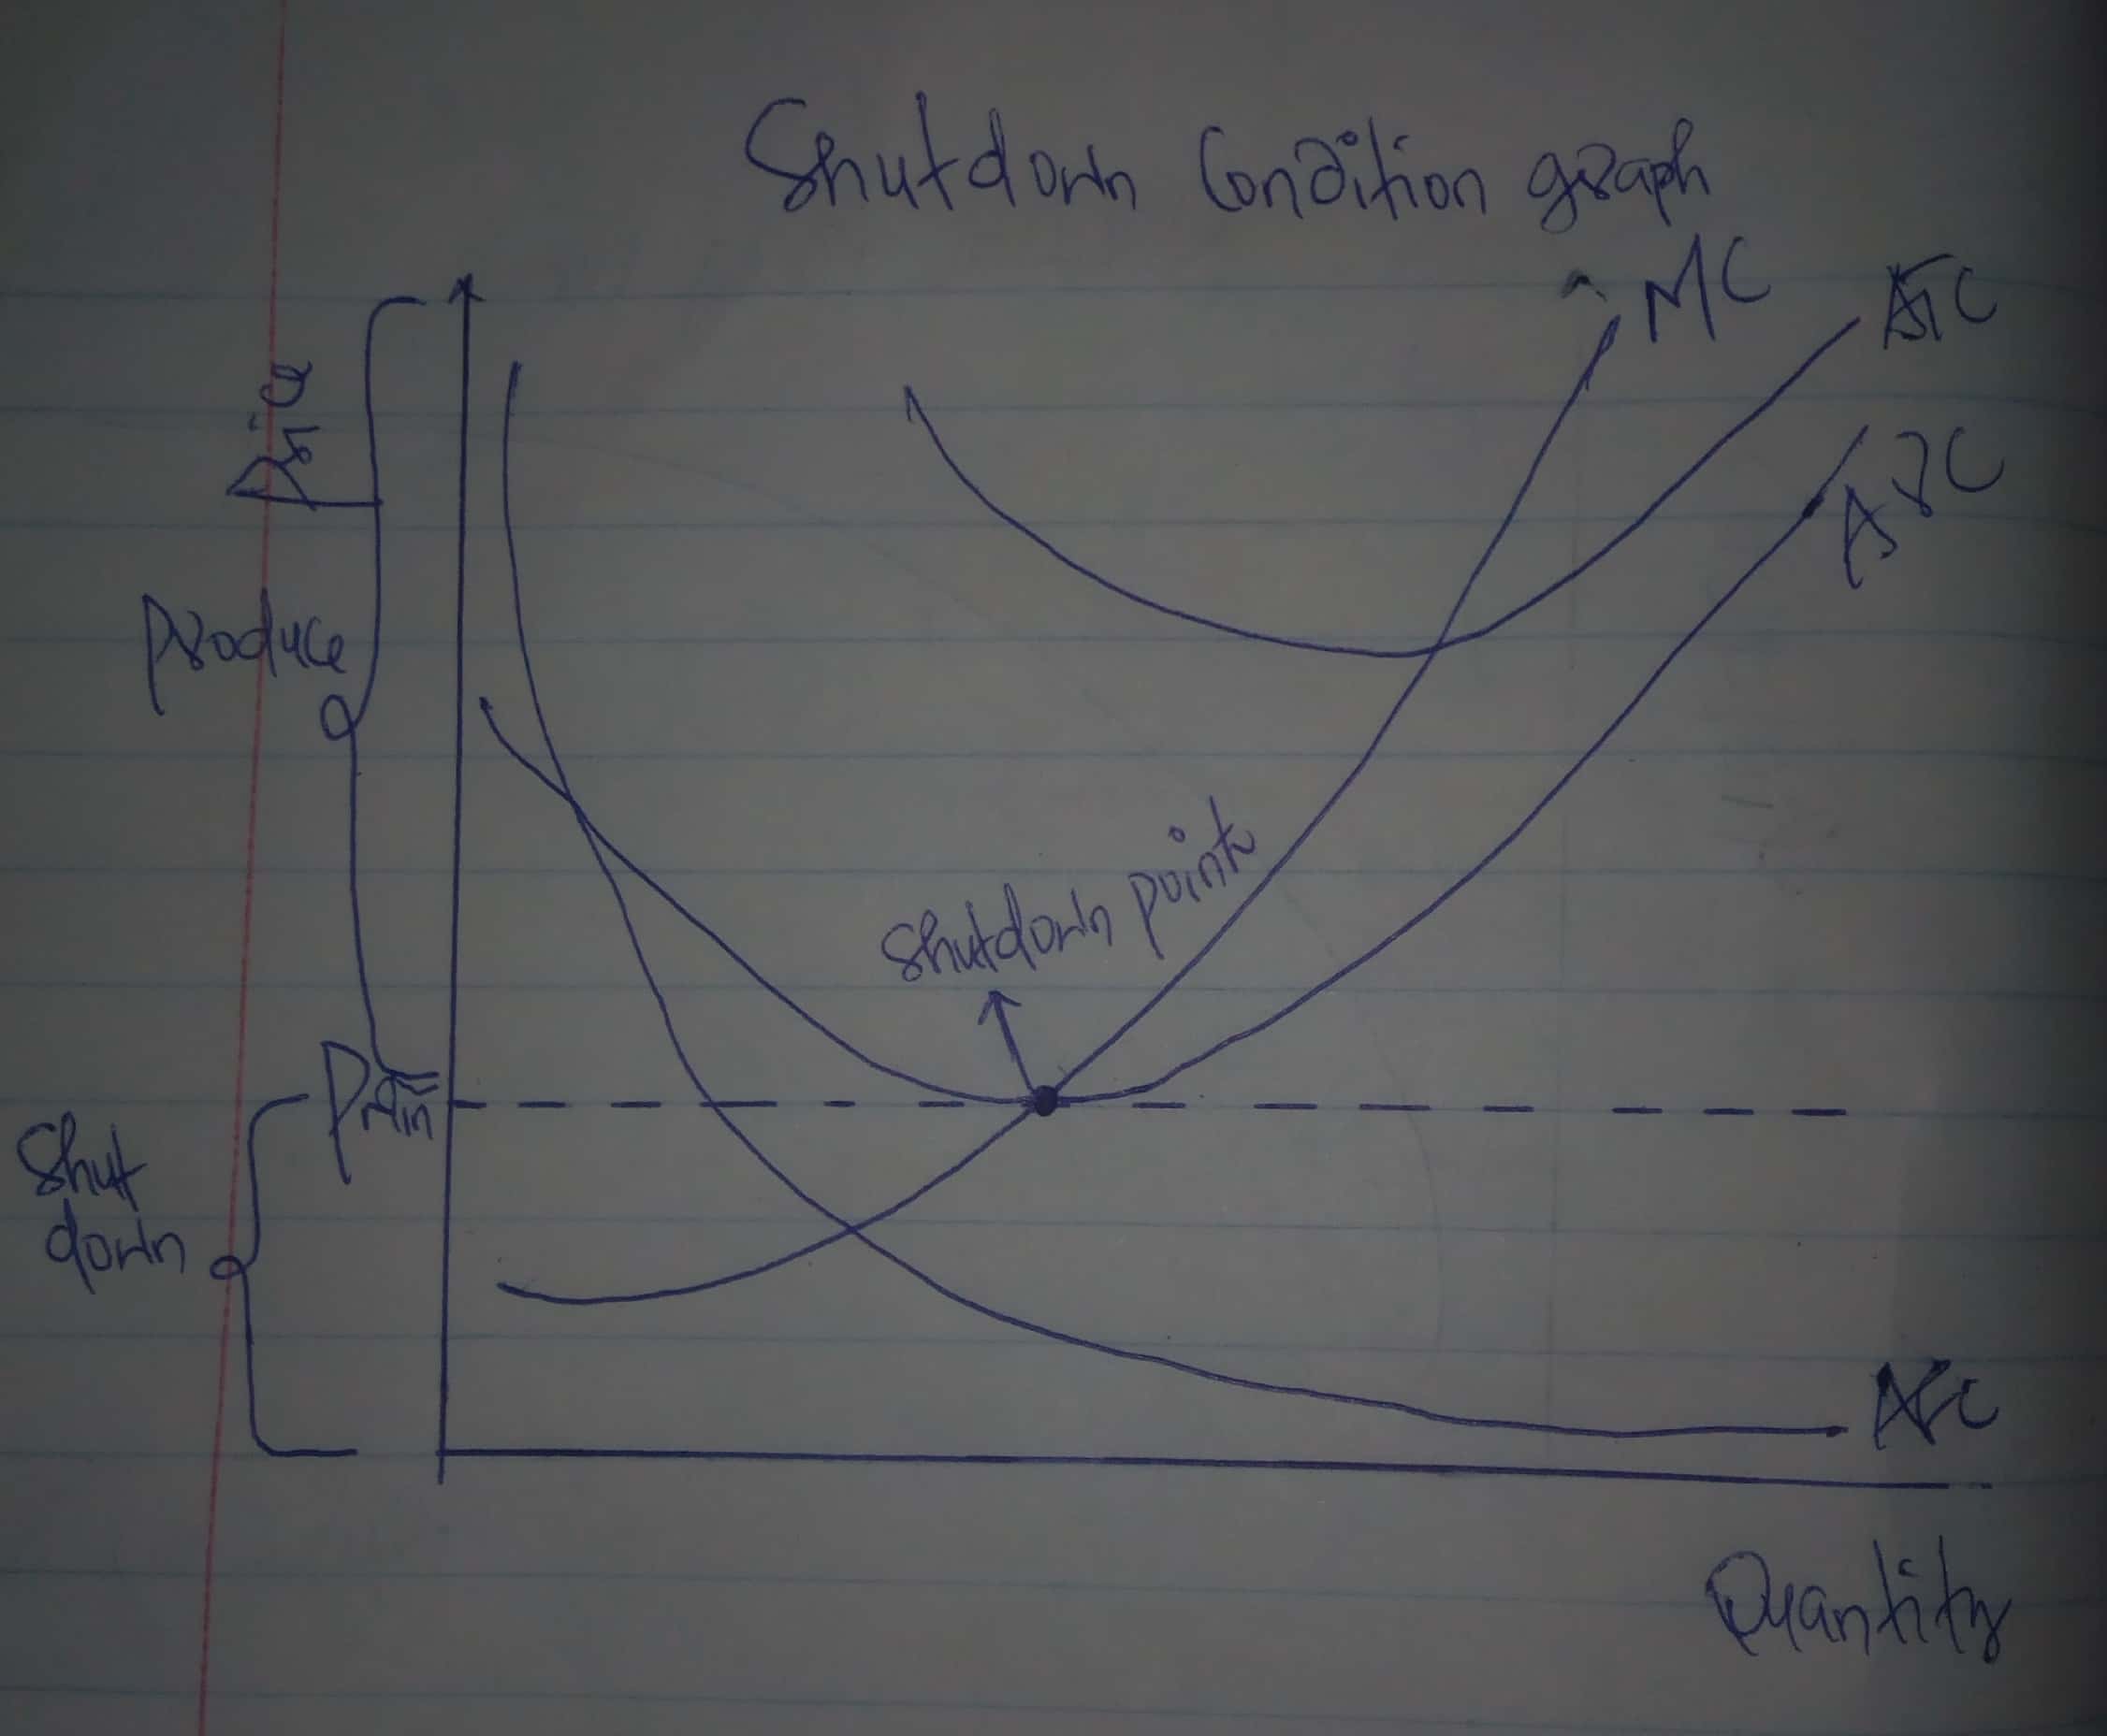 Shutdown Condition graph
MC
ATC
Price
AVC
Produce
Shutdown point
Pmin
Shut
down
AFC
Quantity